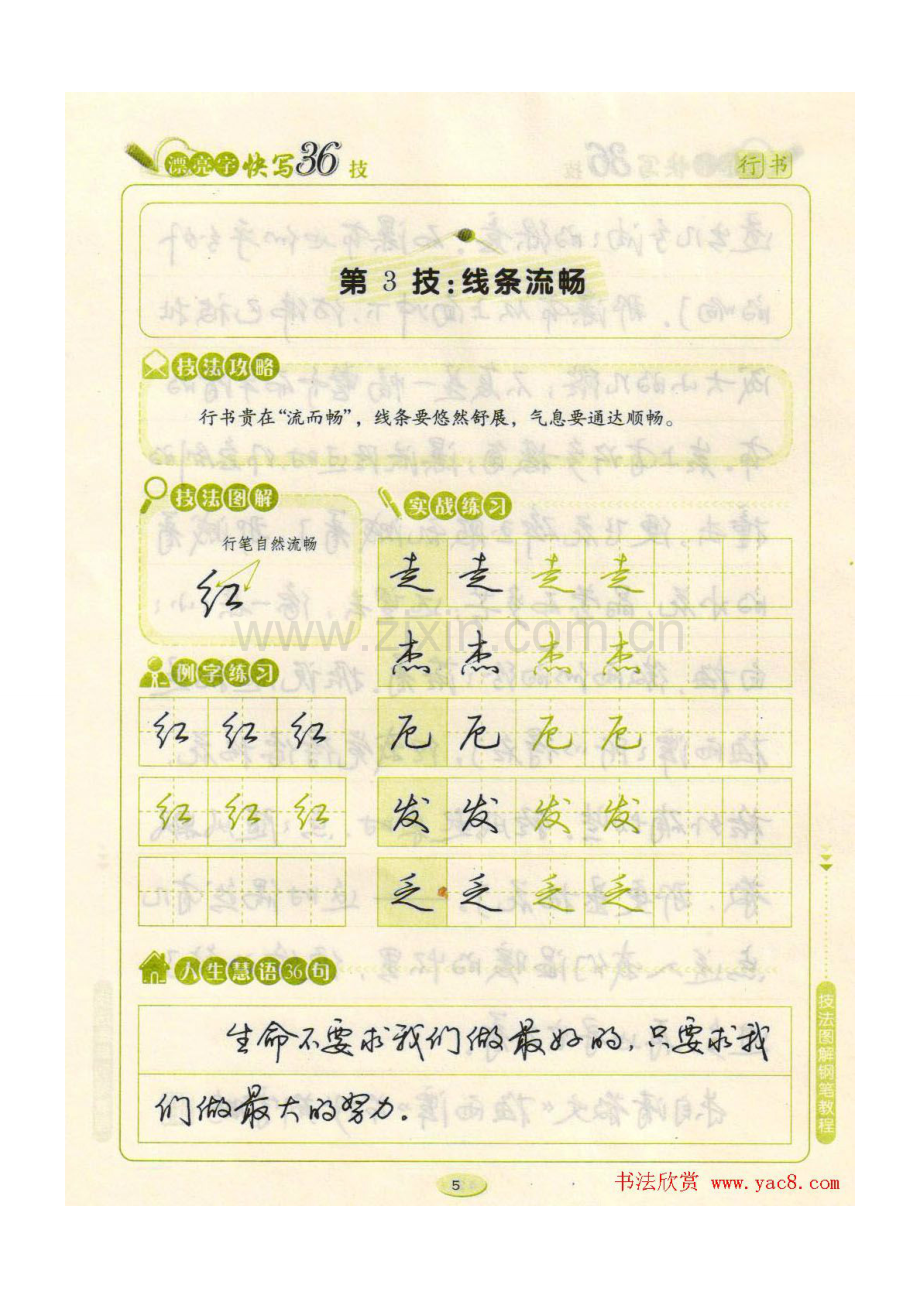 漂亮字快写36技
行书
第3技:线条流畅
技法攻略
行书贵在“流而畅”，线条要悠然舒展，气息要通达顺畅。
技法图解
行笔自然流畅
红
实战练习
走 走 走 走
杰 杰 杰 杰
厄 厄 厄 厄
发 发 发 发
乏 乏 乏 乏
例字练习
红 红 红
红 红 红
人生慧语36句
生命不要求我们做最好的，只要求我
们做最大的努力。
技法图解钢笔教程
5
www.zixin.com.cn
书法欣赏 www.yac8.com